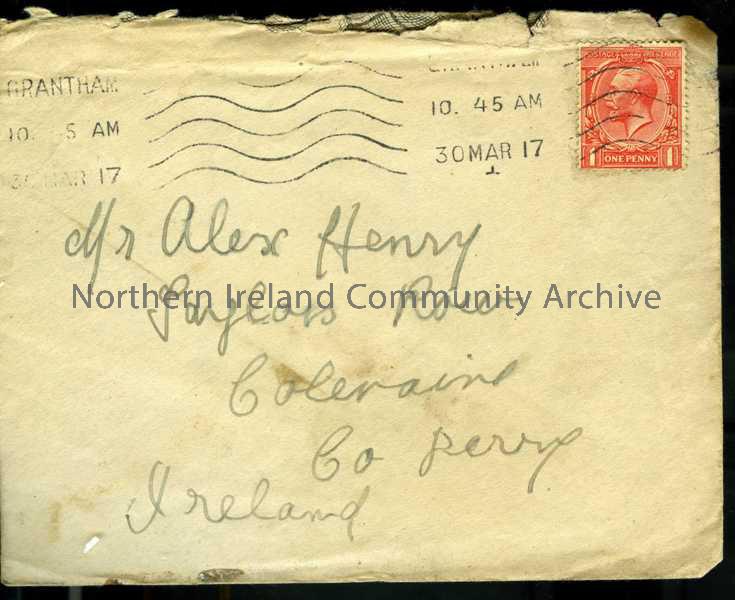 GRANTHAM
10. 45 AM
30 MAR 17
10. 45 AM
30 MAR 17
POSTAGE REVENUE
1 ONE PENNY 1
Mr Alex Henry
Row
Coleraine
Co Derry
Ireland
Northern Ireland Community Archive